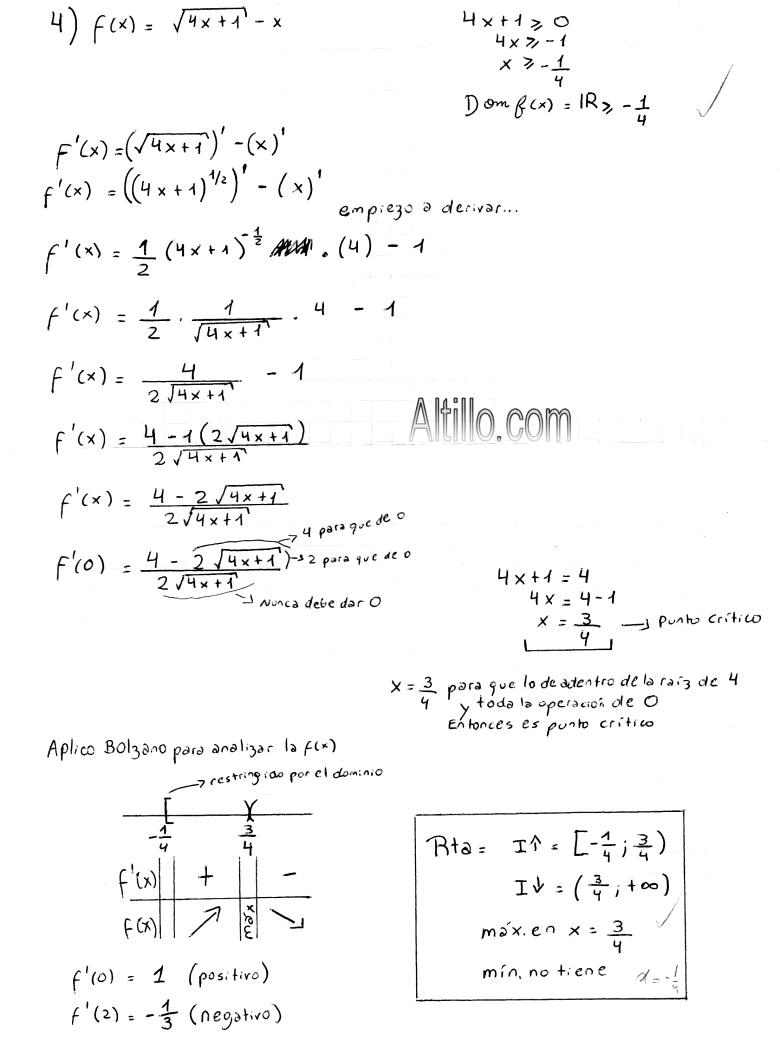 4) f(x) = √(4x+1) - x
4x+1 ≥ 0
4x ≥ -1
x ≥ -1/4
Dom f(x) = IR ≥ -1/4
F'(x) = (√(4x+1))' - (x)'
f'(x) = ((4x+1)^1/2)' - (x)'
empiezo a derivar...
f'(x) = 1/2 (4x+1)^-1/2 . (4) - 1
f'(x) = 1/2 . 1/√(4x+1) . 4 - 1
f'(x) = 4/(2√(4x+1)) - 1
Altillo.com
f'(x) = (4 - 1(2√(4x+1)))/(2√(4x+1))
f'(x) = (4 - 2√(4x+1))/(2√(4x+1))
→ 4 para que de 0
F'(0) = (4 - 2√(4x+1))/(2√(4x+1)) → 2 para que de 0
↳ Nunca debe dar 0
4x+1 = 4
4x = 4-1
x = 3/4 → Punto crítico
x = 3/4 para que lo de adentro de la raíz de 4
y toda la operación de 0
Entonces es punto crítico
Aplico Bolzano para analizar la f(x)
→ restringido por el dominio
-1/4 3/4
f'(x) + -
f(x) ↗ máx ↘
f'(0) = 1 (positivo)
f'(2) = -1/3 (negativo)
Rta = I↑ = [-1/4 ; 3/4)
I↓ = (3/4 ; +∞)
máx. en x = 3/4
mín. no tiene x = -1/4